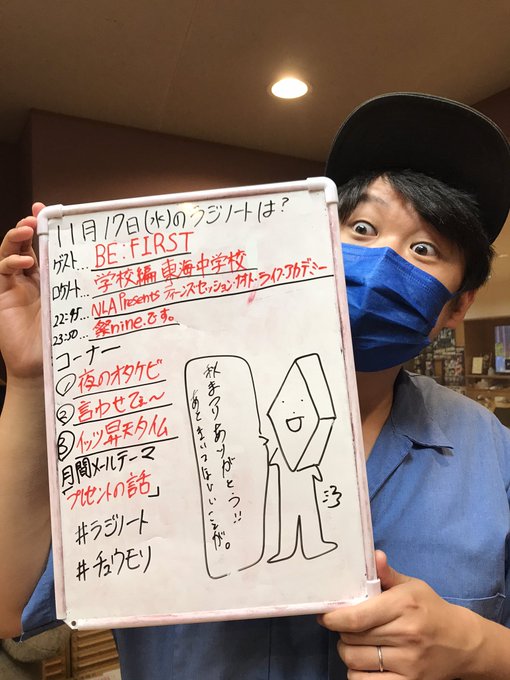 11月17日(水)のラジノートは?
ゲスト… BE:FIRST
ロクノート… 学校編 東海中学校
22:45… NLA Presents ティーンズ・セッション・ナオト・ライフ・アカデミー
23:50… 祭nine.です。
コーナー
① 夜のオタケビ
② 言わせてェ〜
③ イッツ昇天タイム
月間メールテーマ
プレゼントの話」
#ラジノート
#チュウモリ
秋まつりありがとう!!